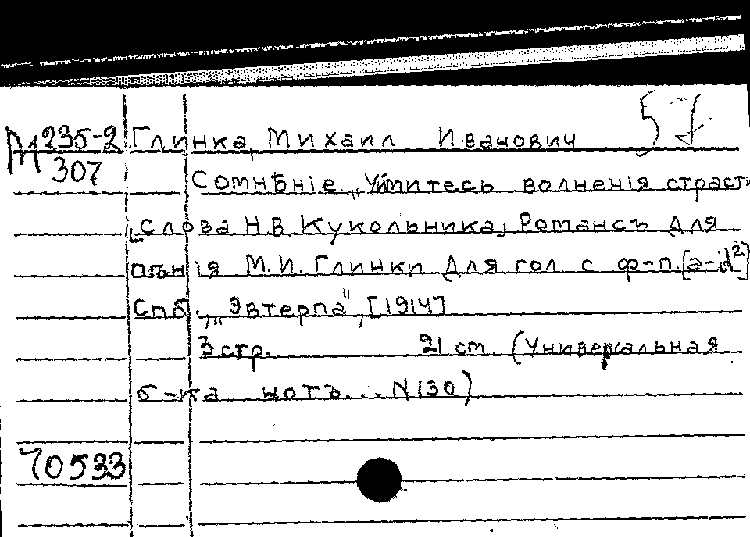 М 235-2 Глинка, Михаил Иванович 57
307
Сомнѣніе „Уймитесь волненія страсти
[слова Н.В. Кукольника, Романсъ для
пѣнія М.И. Глинки Для гол с ф-п. [a-d²]
Спб., „Эвтерпа", [1914]
3 стр. 21 cm (Универсальная
б-ка нотъ... N130)
70533